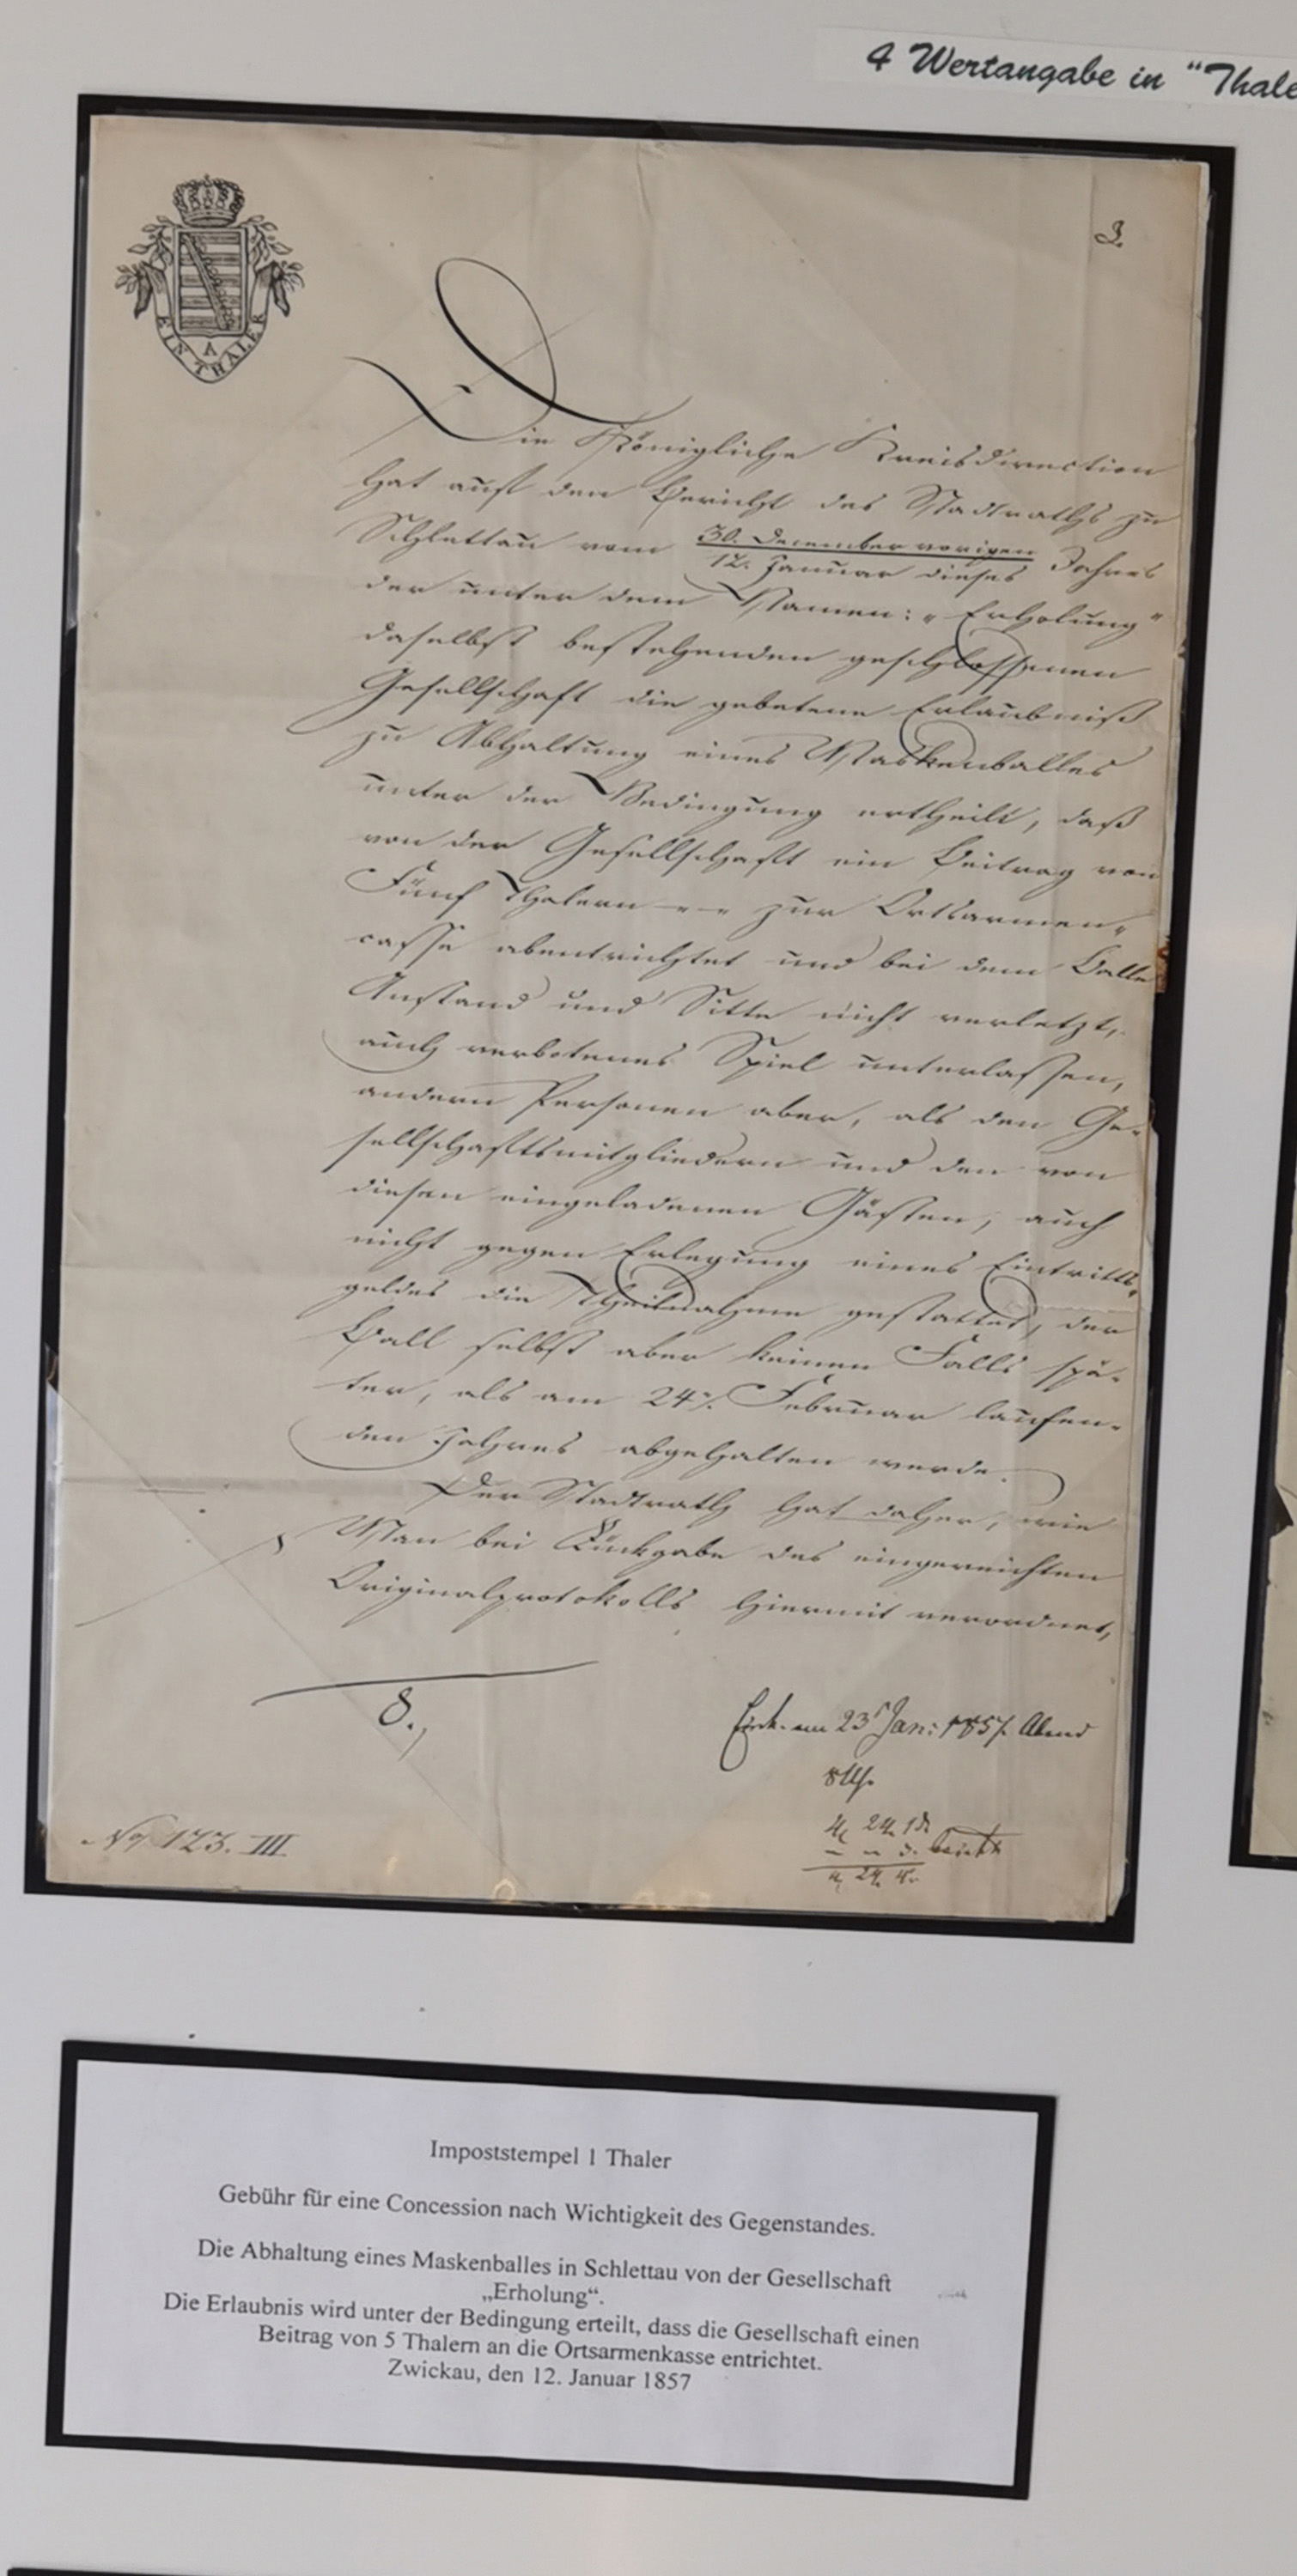 4 Wertangabe in "Thale
EIN THALER
A
3.
Die Königliche Kreisdirection
hat auf den Bericht des Stadtraths zu
Schlettau vom 30. December vorigen / 12. Januar dieses Jahres
der unter dem Namen: „Erholung"
daselbst bestehenden geschlossenen
Gesellschaft die gebetene Erlaubniß
zu Abhaltung eines Maskenballes
unter der Bedingung ertheilt, daß
von der Gesellschaft ein Beitrag von
Fünf Thalern -"-" zur Ortsarmen-
casse abentrichtet und bei dem Balle
Anstand und Sitte nicht verletzt,
auch verbotenes Spiel unterlassen,
andern Personen aber, als den Ge-
sellschaftsmitgliedern und den von
diesen eingeladenen Gästen, auch
nicht gegen Erlegung eines Eintritts-
geldes die Theilnahme gestattet, der
Ball selbst aber keinen Falls spä-
ter, als am 24. Februar laufen-
den Jahres abgehalten werde.
Der Stadtrath hat daher, wie
Man bei Rückgabe des eingereichten
Originalprotokolls hiermit verordnet,
8.,
am 23 Jan: 1857. Abend
8 Uhr
No 123. III
Impoststempel 1 Thaler
Gebühr für eine Concession nach Wichtigkeit des Gegenstandes.
Die Abhaltung eines Maskenballes in Schlettau von der Gesellschaft
„Erholung“.
Die Erlaubnis wird unter der Bedingung erteilt, dass die Gesellschaft einen
Beitrag von 5 Thalern an die Ortsarmenkasse entrichtet.
Zwickau, den 12. Januar 1857